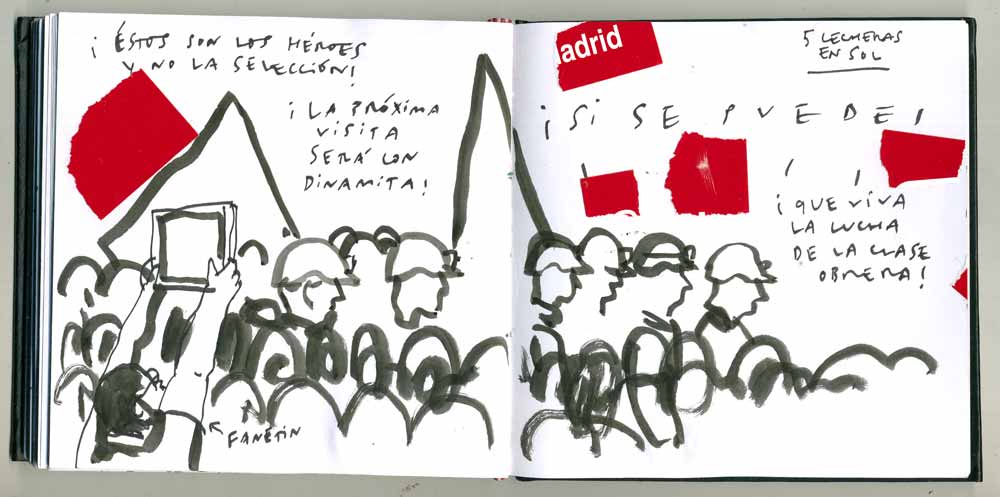 ¡ÉSTOS SON LOS HÉROES
Y NO LA SELECCIÓN!
¡LA PRÓXIMA
VISITA
SERÁ CON
DINAMITA!
FANETÍN
adrid
5 LECHERAS
EN SOL
¡SI SE PUEDE!
¡QUE VIVA
LA LUCHA
DE LA CLASE
OBRERA!